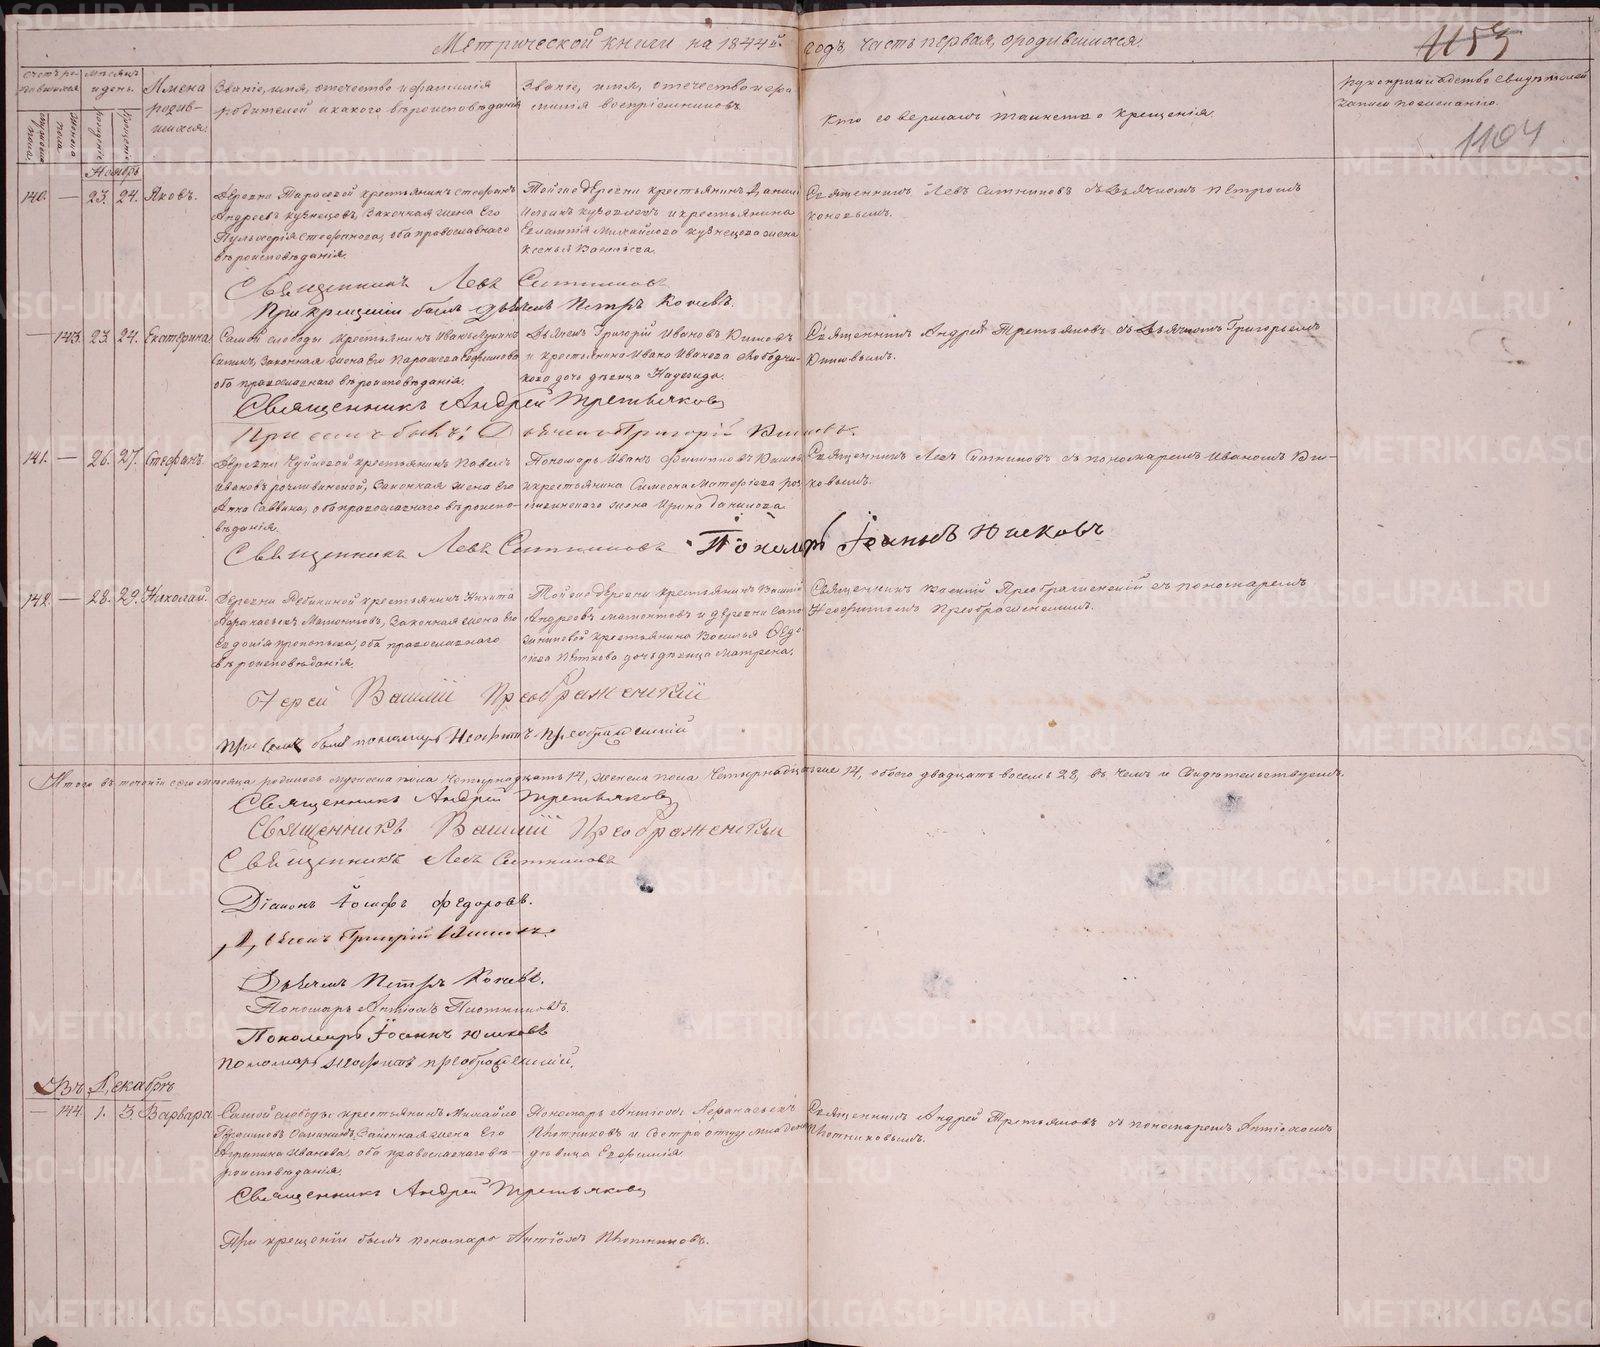 Метрической книги на 1844й годъ, часть первая, о родившихся.
1155
1104
Счетъ родившихся
Мѣсяцъ и день.
Имена родившихся.
Званіе, имя, отечество и фамилія родителей и какого вѣроисповѣданія
Званіе, имя, отечество и фамилія воспріемниковъ
Кто совершалъ таинство крещенія.
Рукоприкладство свидѣтелей записи по желанію.
мужеска пола.
женска пола
рожденіе
крещеніе
Ноябрь
140. — 23. 24. Яковъ.
Деревни крестьянинъ Стефанъ
Андреевъ Кузнецовъ, законная жена его
Пульхерія Стефанова, оба православнаго
вѣроисповѣданія.
Той же деревни крестьянинъ Даніилъ
и крестьянина
Михайлова Кузнецова жена
Ксенья Васильева.
Священникъ Левъ Ситниковъ съ дьячкомъ Петромъ
Коневымъ.
Священникъ Левъ Ситниковъ
При крещеніи былъ дьячекъ Петръ Коневъ.
— 143. 23. 24. Екатерина
Самой слободы крестьянинъ Иванъ
законная жена его Парасковья
оба православнаго вѣроисповѣданія.
Дьячекъ Григорій Ивановъ Кишовъ
и крестьянина Ивана Иванова
дочь дѣвица Надежда.
Священникъ Андрей Третьяковъ съ дьячкомъ Григорьемъ
Священникъ Андрей Третьяковъ
При семъ былъ: Дьячекъ Григорій
141. — 26. 27. Стефанъ.
Деревни крестьянинъ Павелъ
Ивановъ законная жена его
Анна Саввина, оба православнаго вѣроиспо-
вѣданія.
Пономарь Иванъ Филиповъ Юшков
и крестьянина Симеона
жена Ирина Данилова.
Священникъ Левъ Ситниковъ съ пономаремъ Иваномъ Юш-
ковымъ.
Священникъ Левъ Ситниковъ Пономарь Іоаннъ Юшковъ
142. — 28. 29. Николай.
Деревни Рябининой крестьянинъ Никита
Афанасьевъ Мамонтовъ, законная жена его
Евдокія Прокопьева, оба православнаго
вѣроисповѣданія.
Той же деревни крестьянинъ Василій
Андреевъ Мамонтовъ и деревни
крестьянина Василья
дочь дѣвица Матрена.
Священникъ Василій Преображенскій съ пономаремъ
Неофитомъ Преображенскимъ.
Іерей Василій Преображенскій
При семъ былъ пономарь Неофитъ Преображенскій
Итого въ теченіи сего мѣсяца родилось мужеска пола четырнадцать 14, женска пола четырнадцать 14, обоего двадцать восемь 28, въ чемъ и свидѣтельствуемъ.
Священникъ Андрей Третьяковъ
Священникъ Василій Преображенскій
Священникъ Левъ Ситниковъ
Діаконъ Іосифъ Федоровъ.
Дьячекъ Григорій
Дьячекъ Петръ Коневъ.
Пономарь Антіохъ Плотниковъ.
Пономарь Іоаннъ Юшковъ
Пономарь Неофитъ Преображенскій.
Въ Декабрѣ
— 144. 1. 3. Варвара
Самой слободы крестьянинъ Михайло
Герасимовъ законная жена его
Агрипина Иванова, оба православнаго вѣ-
роисповѣданія.
Пономарь Антіохъ Афанасьевъ
Плотниковъ и сестра
дѣвица Евфимія.
Священникъ Андрей Третьяковъ съ пономаремъ Антіохомъ
Плотниковымъ.
Священникъ Андрей Третьяковъ
При крещеніи былъ пономарь Антіохъ Плотниковъ.
METRIKI.GASO-URAL.RU